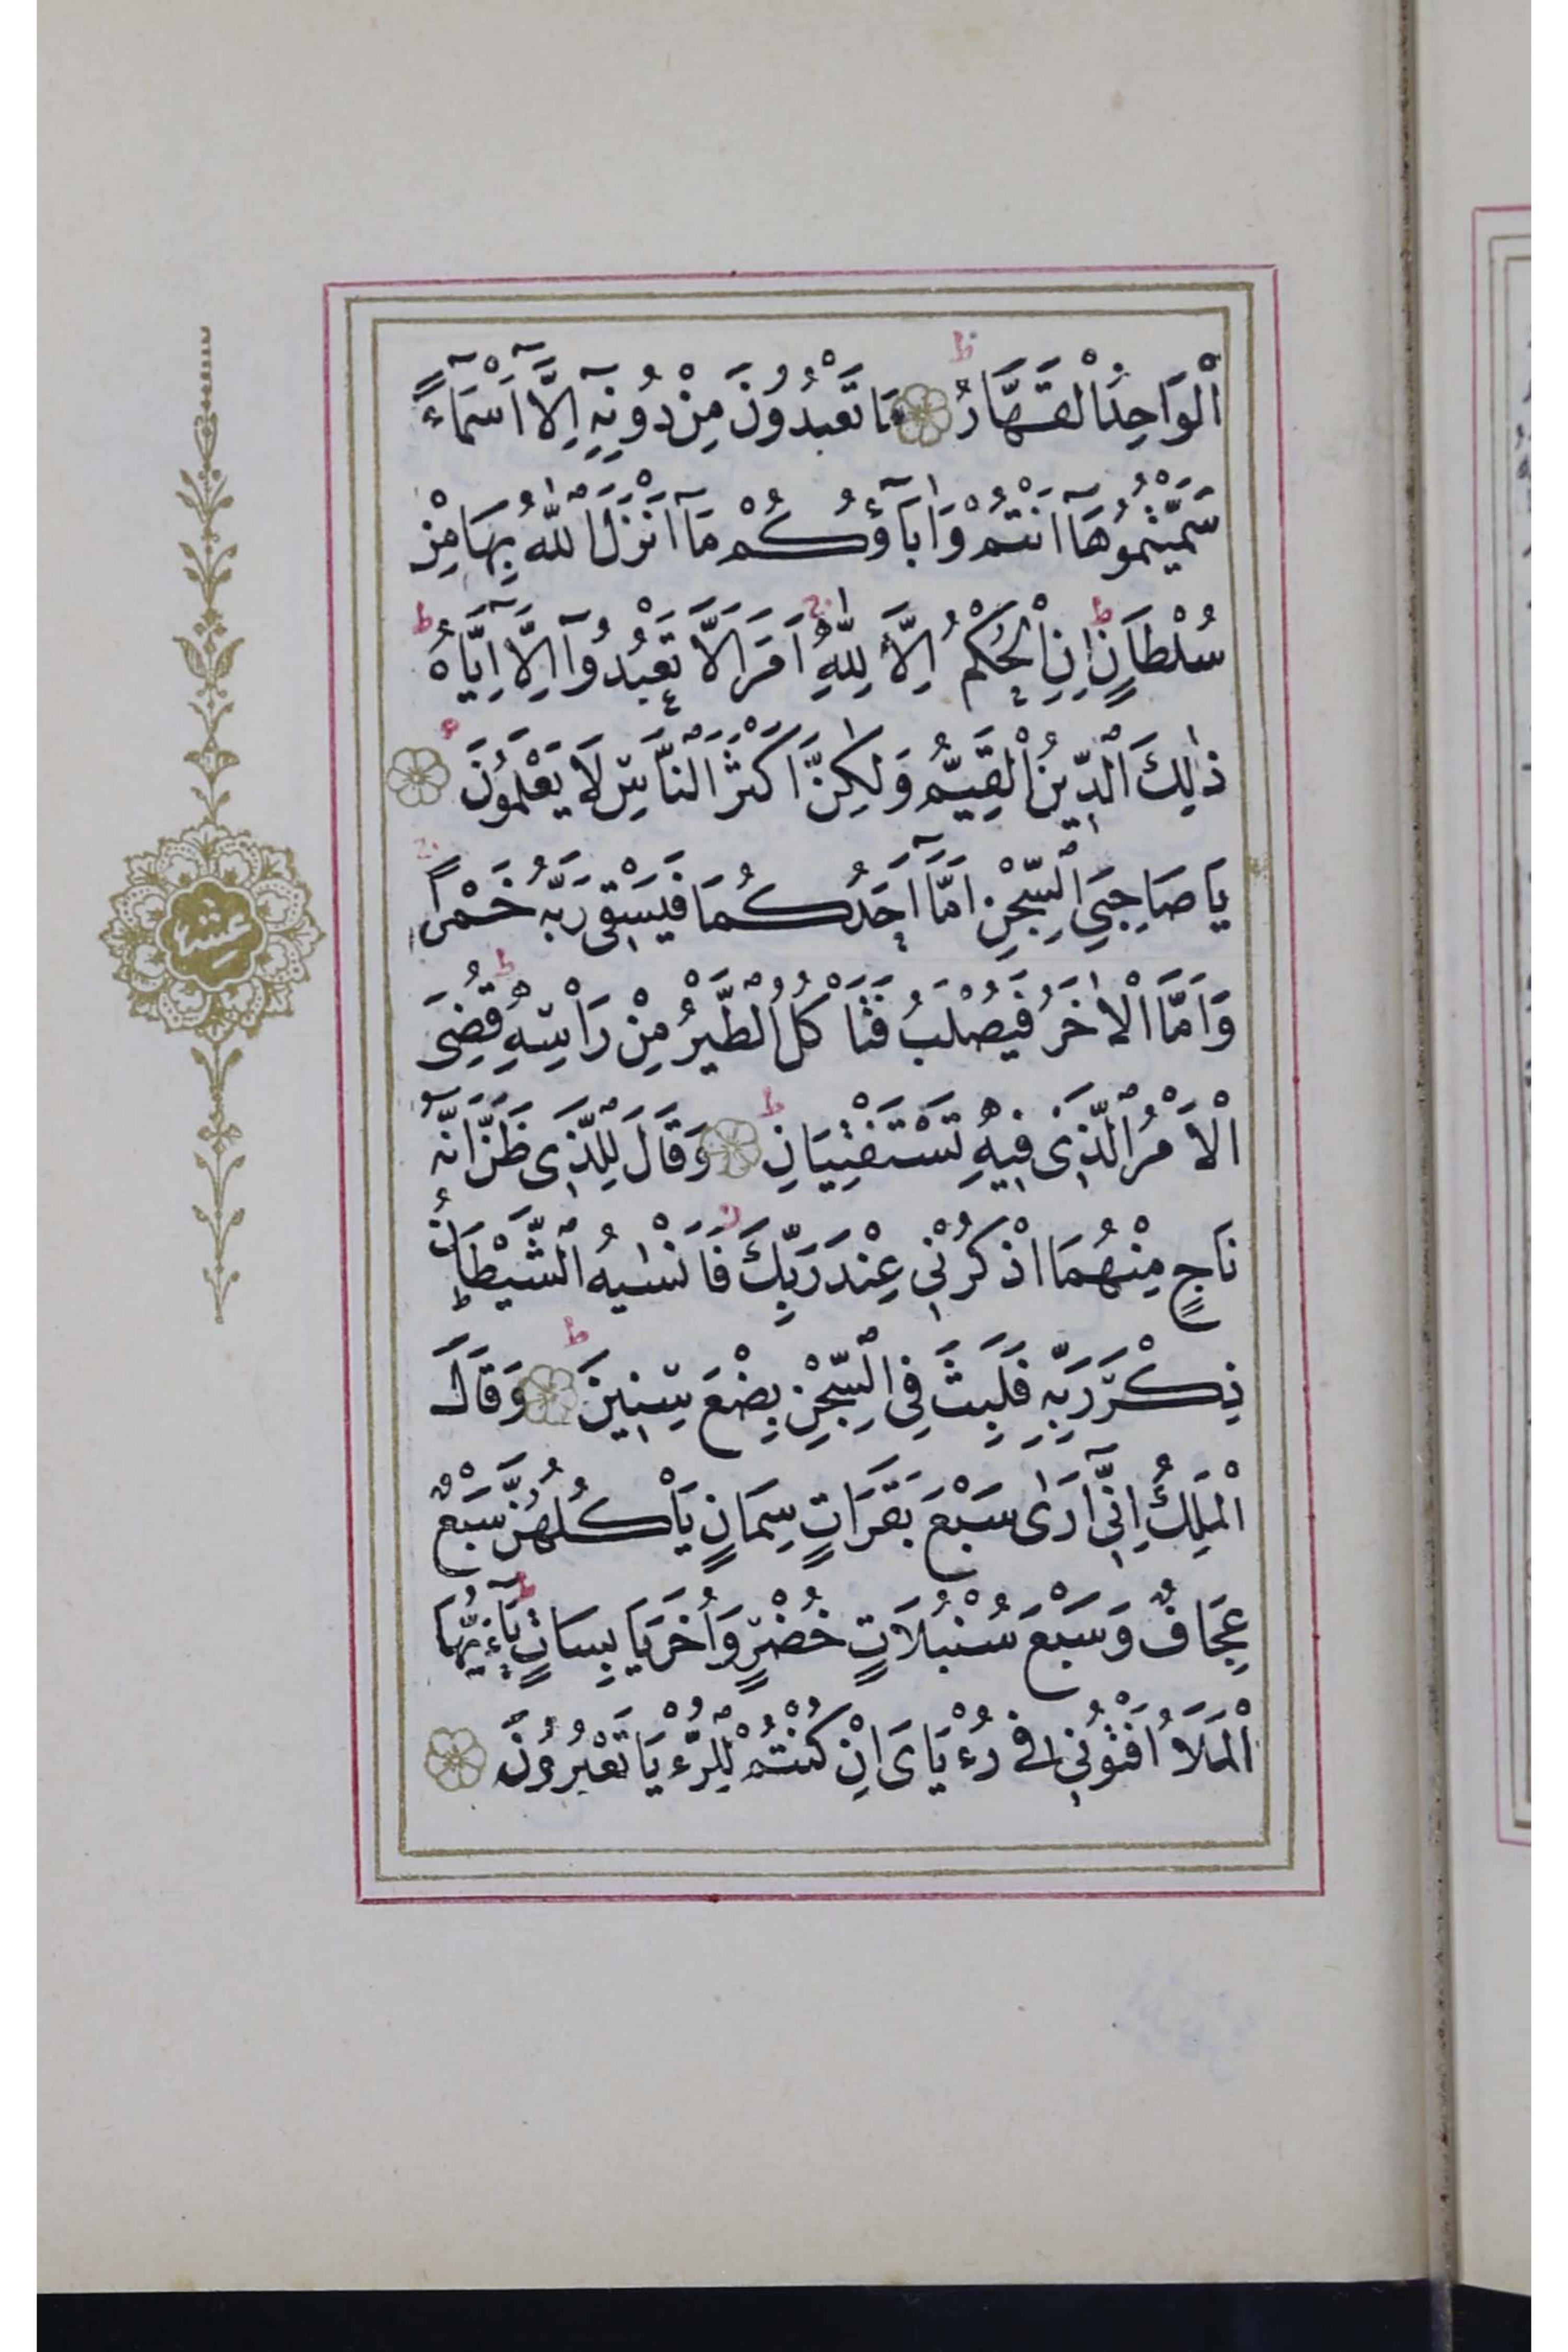 اَلْوَاحِدُ الْقَهَّارُ ط مَا تَعْبُدُونَ مِنْ دُونِهٖٓ اِلَّٓا اَسْمَٓاءً
سَمَّيْتُمُوهَٓا اَنْتُمْ وَاٰبَٓاؤُكُمْ مَٓا اَنْزَلَ اللّٰهُ بِهَا مِنْ
سُلْطَانٍ ط اِنِ الْحُكْمُ اِلَّا لِلّٰهِ ج اَمَرَ اَلَّا تَعْبُدُٓوا اِلَّٓا اِيَّاهُ ط
ذٰلِكَ الدِّينُ الْقَيِّمُ وَلٰكِنَّ اَكْثَرَ النَّاسِ لَا يَعْلَمُونَ
يَا صَاحِبَيِ السِّجْنِ اَمَّٓا اَحَدُكُمَا فَيَسْقِى رَبَّهُ خَمْرًا ج
وَاَمَّا الْاٰخَرُ فَيُصْلَبُ فَتَأْكُلُ الطَّيْرُ مِنْ رَأْسِهٖ ط قُضِىَ
الْاَمْرُ الَّذِى فِيهِ تَسْتَفْتِيَانِ ط وَقَالَ لِلَّذِى ظَنَّ اَنَّهُ
نَاجٍ مِنْهُمَا اذْكُرْنِى عِنْدَ رَبِّكَ ز فَاَنْسٰيهُ الشَّيْطَانُ
ذِكْرَ رَبِّهٖ فَلَبِثَ فِى السِّجْنِ بِضْعَ سِنِينَ ط وَقَالَ
الْمَلِكُ اِنِّٓى اَرٰى سَبْعَ بَقَرَاتٍ سِمَانٍ يَأْكُلُهُنَّ سَبْعٌ
عِجَافٌ وَسَبْعَ سُنْبُلَاتٍ خُضْرٍ وَاُخَرَ يَابِسَاتٍ ط يَٓا اَيُّهَا
الْمَلَأُ اَفْتُونِى فِى رُءْيَاىَ اِنْ كُنْتُمْ لِلرُّءْيَا تَعْبُرُونَ